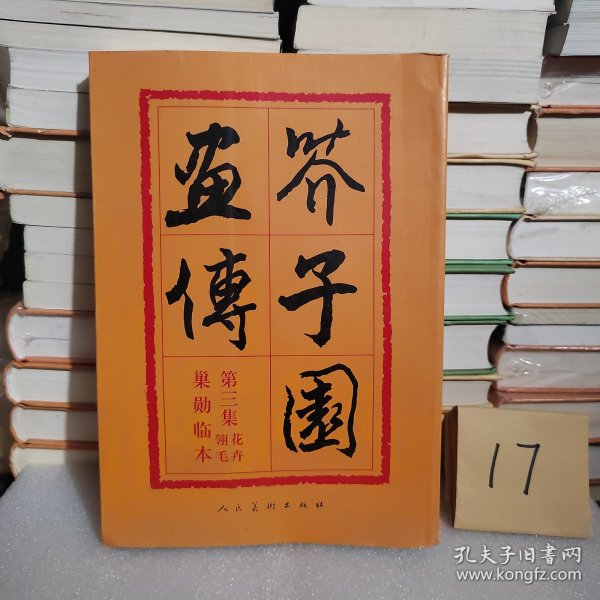 芥子園
畫傳
第三集
花卉
翎毛
巢勋临本
人民美術出版社
17
孔夫子旧书网
www.kongfz.com